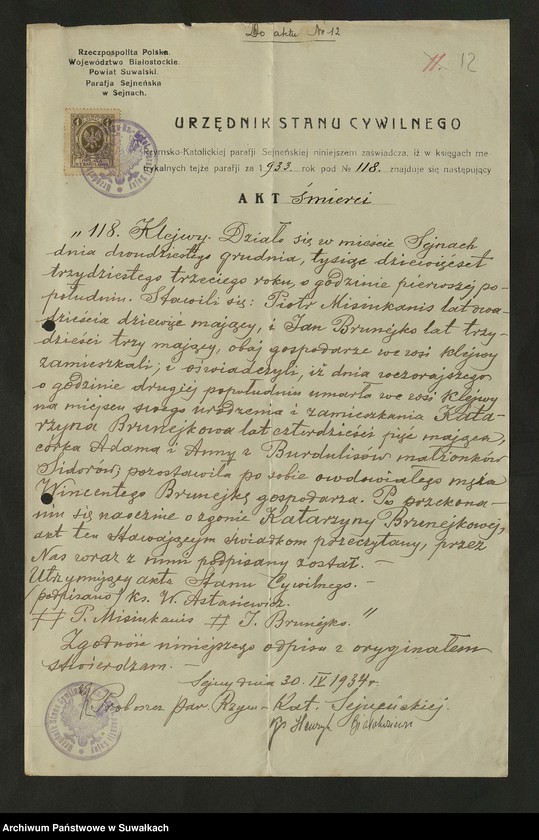 Do aktu No 12
Rzeczpospolita Polska.
Województwo Białostockie.
Powiat Suwalski.
Parafja Sejneńska
w Sejnach.
11. 12
URZĘDNIK STANU CYWILNEGO
Rzymsko-Katolickiej parafji Sejneńskiej niniejszem zaświadcza, iż w księgach me
trykalnych tejże parafji za 1933. rok pod № 118. znajduje się następujący
AKT śmierci
„118. Klejwy. Działo się w mieście Sejnach
dnia dwudziestego grudnia, tysiąc dziewięćset
trzydziestego trzeciego roku, o godzinie pierwszej po-
południu. Stawili się: Piotr Misiukanis lat dwa-
dzieścia dziewięć mający, i Jan Brunejko lat trzy-
dzieści trzy mający, obaj gospodarze we wsi Klejwy
zamieszkali; i oświadczyli, iż dnia wczorajszego
o godzinie drugiej popołudniu umarła we wsi Klejwy
na miejscu swego urodzenia i zamieszkania Kata-
rzyna Brunejkowa lat czterdzieści pięć mająca,
córka Adama i Anny z Burdulisów małżonków
Sidorów; pozostawiła po sobie owdowiałego męża
Wincentego Brunejkę gospodarza. Po przekona-
niu się naocznie o zgonie Katarzyny Brunejkowej,
akt ten stawającym świadkom przeczytany, przez
Nas wraz z nimi podpisany został. —
Utrzymujący akta Stanu Cywilnego. —
/podpisano/ ks. W. Astasiewicz.
P. Misiukanis J. Brunejko."
Zgodność niniejszego odpisu z oryginałem
stwierdzam. —
Sejny dnia 30. IV 1934 r.
Proboszcz par. Rzym-Kat. Sejneńskiej.
Henryk
Archiwum Państwowe w Suwałkach